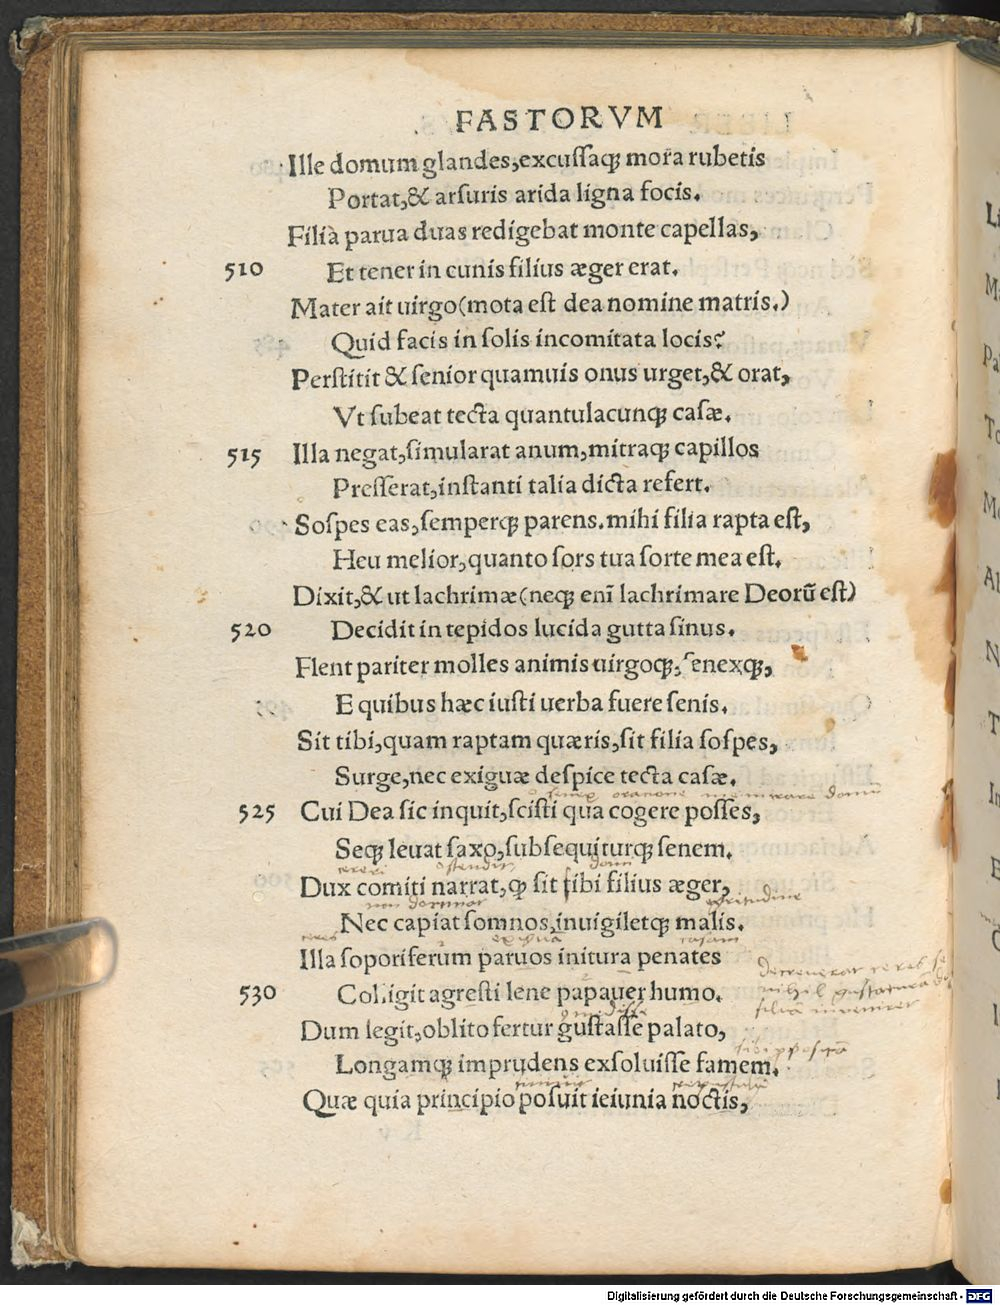 FASTORVM
Ille domum glandes,excussaq; mora rubetis
Portat,& arsuris arida ligna focis.
Filia parua duas redigebat monte capellas,
510 Et tener in cunis filius æger erat.
Mater ait uirgo(mota est dea nomine matris.)
Quid facis in solis incomitata locis?
Perstitit & senior quamuis onus urget,& orat,
Vt subeat tecta quantulacunq; casæ.
515 Illa negat,simularat anum,mitraq; capillos
Presserat,instanti talia dicta refert.
Sospes eas,semperq; parens.mihi filia rapta est,
Heu melior,quanto sors tua sorte mea est.
Dixit,& ut lachrimæ(neq; enĩ lachrimare Deorũ est)
520 Decidit in tepidos lucida gutta sinus.
Flent pariter molles animis uirgoq;,senexq;,
E quibus hæc iusti uerba fuere senis.
Sit tibi,quam raptam quæris,sit filia sospes,
Surge,nec exiguæ despice tecta casæ.
senex oratione
525 Cui Dea sic inquit,scisti qua cogere posses,
Seq; leuat saxo,subsequiturq; senem.
cereri ostendit domi
Dux comiti narrat,ꝙ sit sibi filius æger,
non dormiat egritudine
Nec capiat somnos,inuigiletq; malis.
ceres exigua casam
Illa soporiferum paruos initura penates
decreuerat ceres se
530 Colligit agresti lene papauer humo.
nihil gustaturã
filiã inueniret
Dum legit,oblito fertur gustasse palato,
Longamq; imprudens exsoluisse famem.
Quæ quia principio posuit ieiunia noctis,
Digitalisierung gefördert durch die Deutsche Forschungsgemeinschaft - DFG